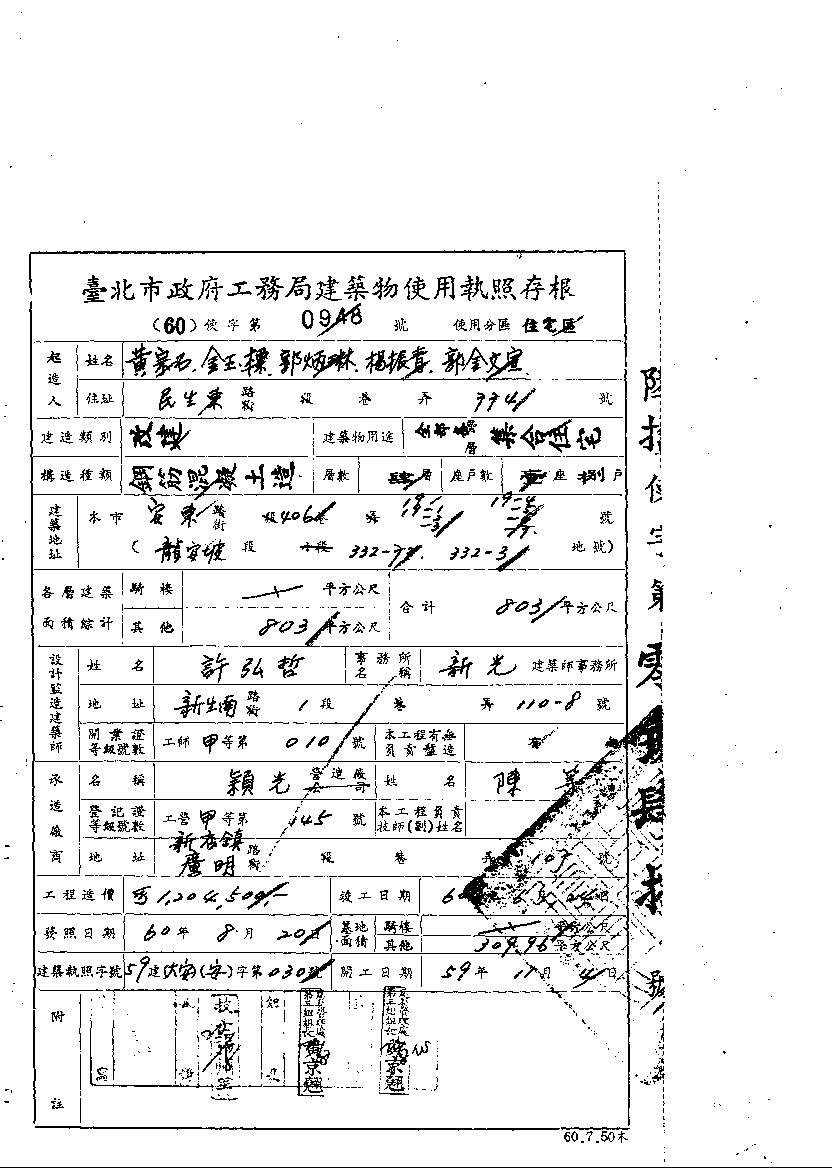 臺北市政府工務局建築物使用執照存根
(60)使字第 0948 號 使用分區 住宅區
起造人 姓名 黃家石 金玉樑 郭炳琳 楊振青 郭金文宣
住址 民生東 路街 段 巷 弄 774 號
建造類別 改建 建築物用途 層層 集合住宅
構造種類 鋼筋混凝土造 層數 肆 層 座戶數 壹 座 捌 戶
建築地址 本市 安東 路街 段 406 巷 弄 號
( 龍安坡 段 小段 332-37. 332-3 地號)
各層建築面積綜計 騎樓 平方公尺 合計 803 平方公尺
其他 803 平方公尺
設計監造建築師 姓名 許弘哲 事務所名稱 新光 建築師事務所
地址 新生南 路街 1 段 巷 弄 110-8 號
開業證等級號數 工師 甲 等第 010 號 本工程有無員責監造 有
承造廠商 名稱 穎光 營造廠公司 姓名 陳
登記證等級號數 工營 甲 等第 145 號 本工程負責技師(副)姓名
地址 新店鎮 廣明 路街 段 巷 弄 107 號
工程造價 1,204,500.- 竣工日期 60
發照日期 60 年 8 月 20 日 基地面積 騎樓 平方公尺
其他 309.96 平方公尺
建築執照字號 59 建 (安) 字第 030 號 開工日期 59 年 11 月 4 日
附註
黃京翹
60.7.50本
陸拾使字第零玖肆捌號